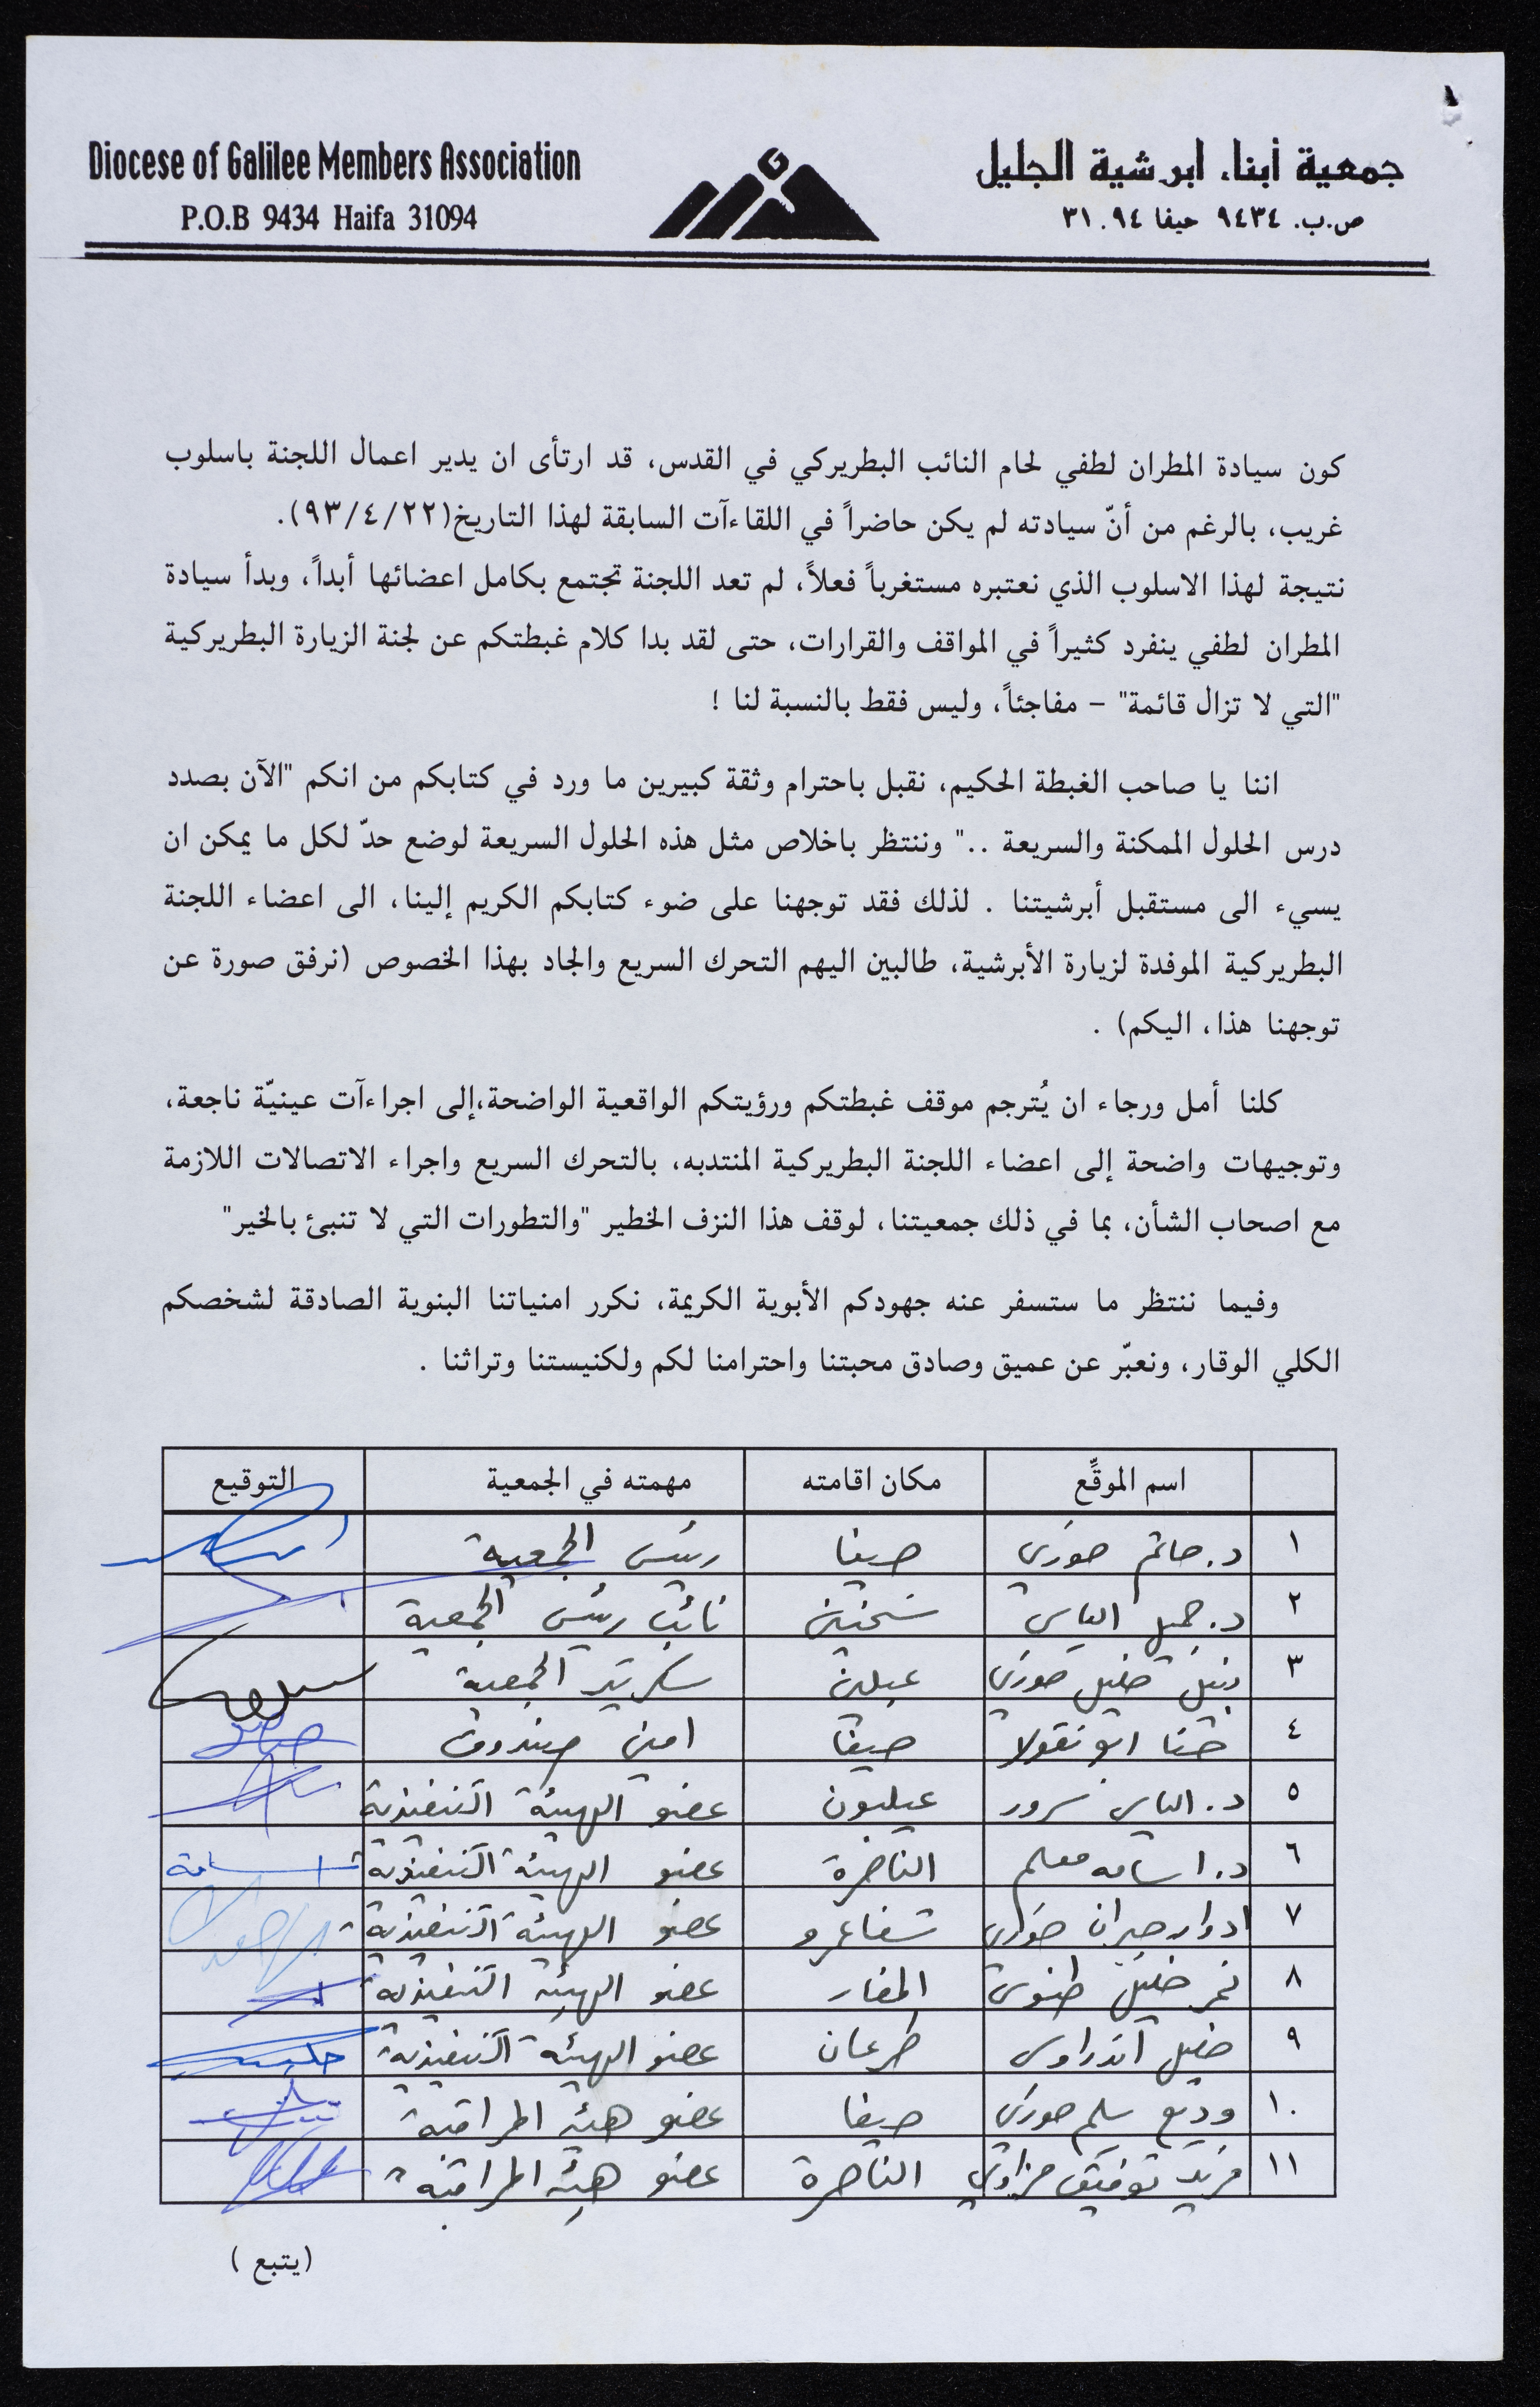 Diocese of Galilee Members Association
P.O.B 9434 Haifa 31094
جمعية أبناء ابرشية الجليل
ص.ب. ٩٤٣٤ حيفا ٣١٠٩٤
كون سيادة المطران لطفي لحام النائب البطريركي في القدس، قد ارتأى ان يدير اعمال اللجنة باسلوب
غريب، بالرغم من أنّ سيادته لم يكن حاضراً في اللقاءآت السابقة لهذا التاريخ(٩٣/٤/٢٢).
نتيجة لهذا الاسلوب الذي نعتبره مستغرباً فعلاً، لم تعد اللجنة تجتمع بكامل اعضائها أبداً، وبدأ سيادة
المطران لطفي ينفرد كثيراً في المواقف والقرارات، حتى لقد بدا كلام غبطتكم عن لجنة الزيارة البطريركية
"التي لا تزال قائمة" - مفاجئاً، وليس فقط بالنسبة لنا !
اننا يا صاحب الغبطة الحكيم، نقبل باحترام وثقة كبيرين ما ورد في كتابكم من انكم "الآن بصدد
درس الحلول الممكنة والسريعة .." وننتظر باخلاص مثل هذه الحلول السريعة لوضع حدّ لكل ما يمكن ان
يسيء الى مستقبل أبرشيتنا . لذلك فقد توجهنا على ضوء كتابكم الكريم إلينا، الى اعضاء اللجنة
البطريركية الموفدة لزيارة الأبرشية، طالبين اليهم التحرك السريع والجاد بهذا الخصوص (نرفق صورة عن
توجهنا هذا، اليكم) .
كلنا أمل ورجاء ان يُترجم موقف غبطتكم ورؤيتكم الواقعية الواضحة،إلى اجراءآت عينيّة ناجعة،
وتوجيهات واضحة إلى اعضاء اللجنة البطريركية المنتدبه، بالتحرك السريع واجراء الاتصالات اللازمة
مع اصحاب الشأن، بما في ذلك جمعيتنا، لوقف هذا النزف الخطير "والتطورات التي لا تنبئ بالخير"
وفيما ننتظر ما ستسفر عنه جهودكم الأبوية الكريمة، نكرر امنياتنا البنوية الصادقة لشخصكم
الكلي الوقار، ونعبّر عن عميق وصادق محبتنا واحترامنا لكم ولكنيستنا وتراثنا .
اسم الموقِّع مكان اقامته مهمته في الجمعية التوقيع
١ د. حاتم خوري حيفا رئيس الجمعية
٢ د. جميل الياس سخنين نائب رئيس الجمعية
٣ نبيل خليل خوري عبلين سكرتير الجمعية
٤ حنا ابو نقولا حيفا امين صندوق
٥ د. الياس سرور عيلبون عضو الهيئة التنفيذية
٦ د. اسامه معلم الناصرة عضو الهيئة التنفيذية اسامة
٧ ادوار جبران خوري شفاعمرو عضو الهيئة التنفيذية
٨ نمر خليل طنوس المغار عضو الهيئة التنفيذية
٩ خليل اندراوس طرعان عضو الهيئة التنفيذية
١٠ وديع سليم خوري حيفا عضو هيئة المراقبة
١١ فريد توفيق الناصرة عضو هيئة المراقبة
(يتبع )